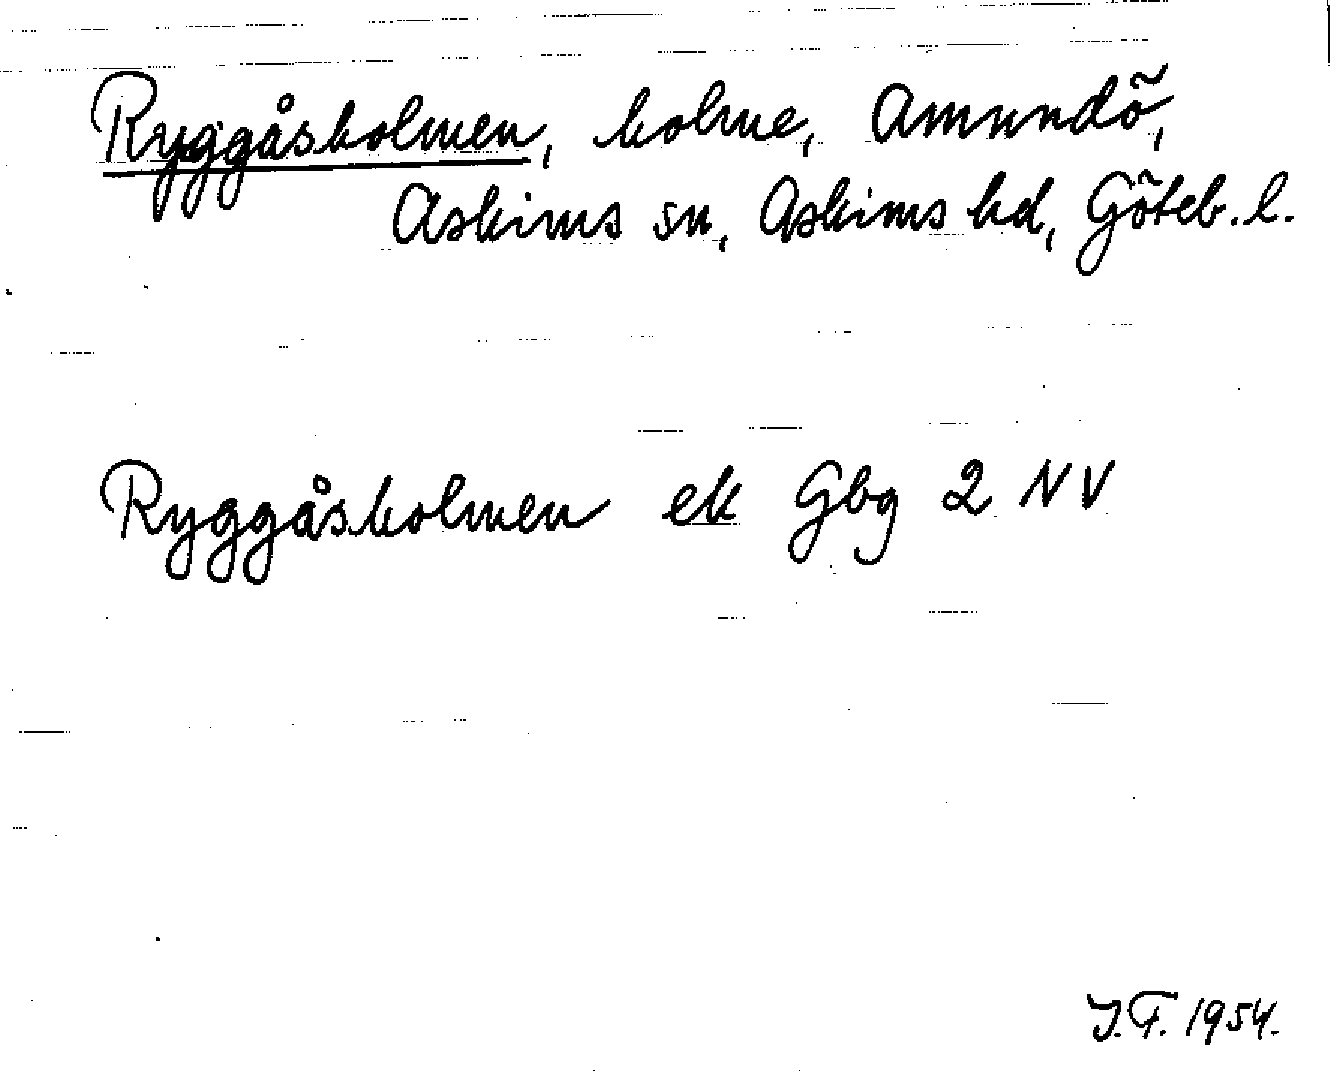 Ryggåsholmen, holme, Amundö,
Askims sn, Askims hd, Göteb. l.
Ryggåsholmen ek Gbg 2 NV
J.F. 1954.